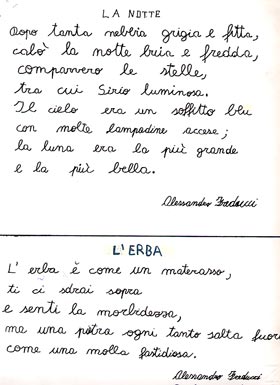 LA NOTTE
Dopo tanta nebbia grigia e fitta,
calò la notte buia e fredda,
comparvero le stelle,
tra cui Sirio luminosa.
Il cielo era un soffitto blu
con molte lampadine accese;
la luna era la più grande
e la più bella.
Alessandro
L'ERBA
L' erba è come un materasso,
ti ci sdrai sopra
e senti la morbidezza,
ma una pietra ogni tanto salta fuori
come una molla fastidiosa.
Alessandro